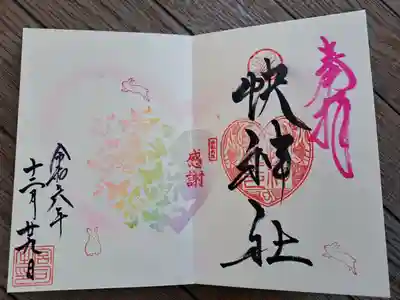 奉拝
快神社
感謝
令和六年
十二月廿九日